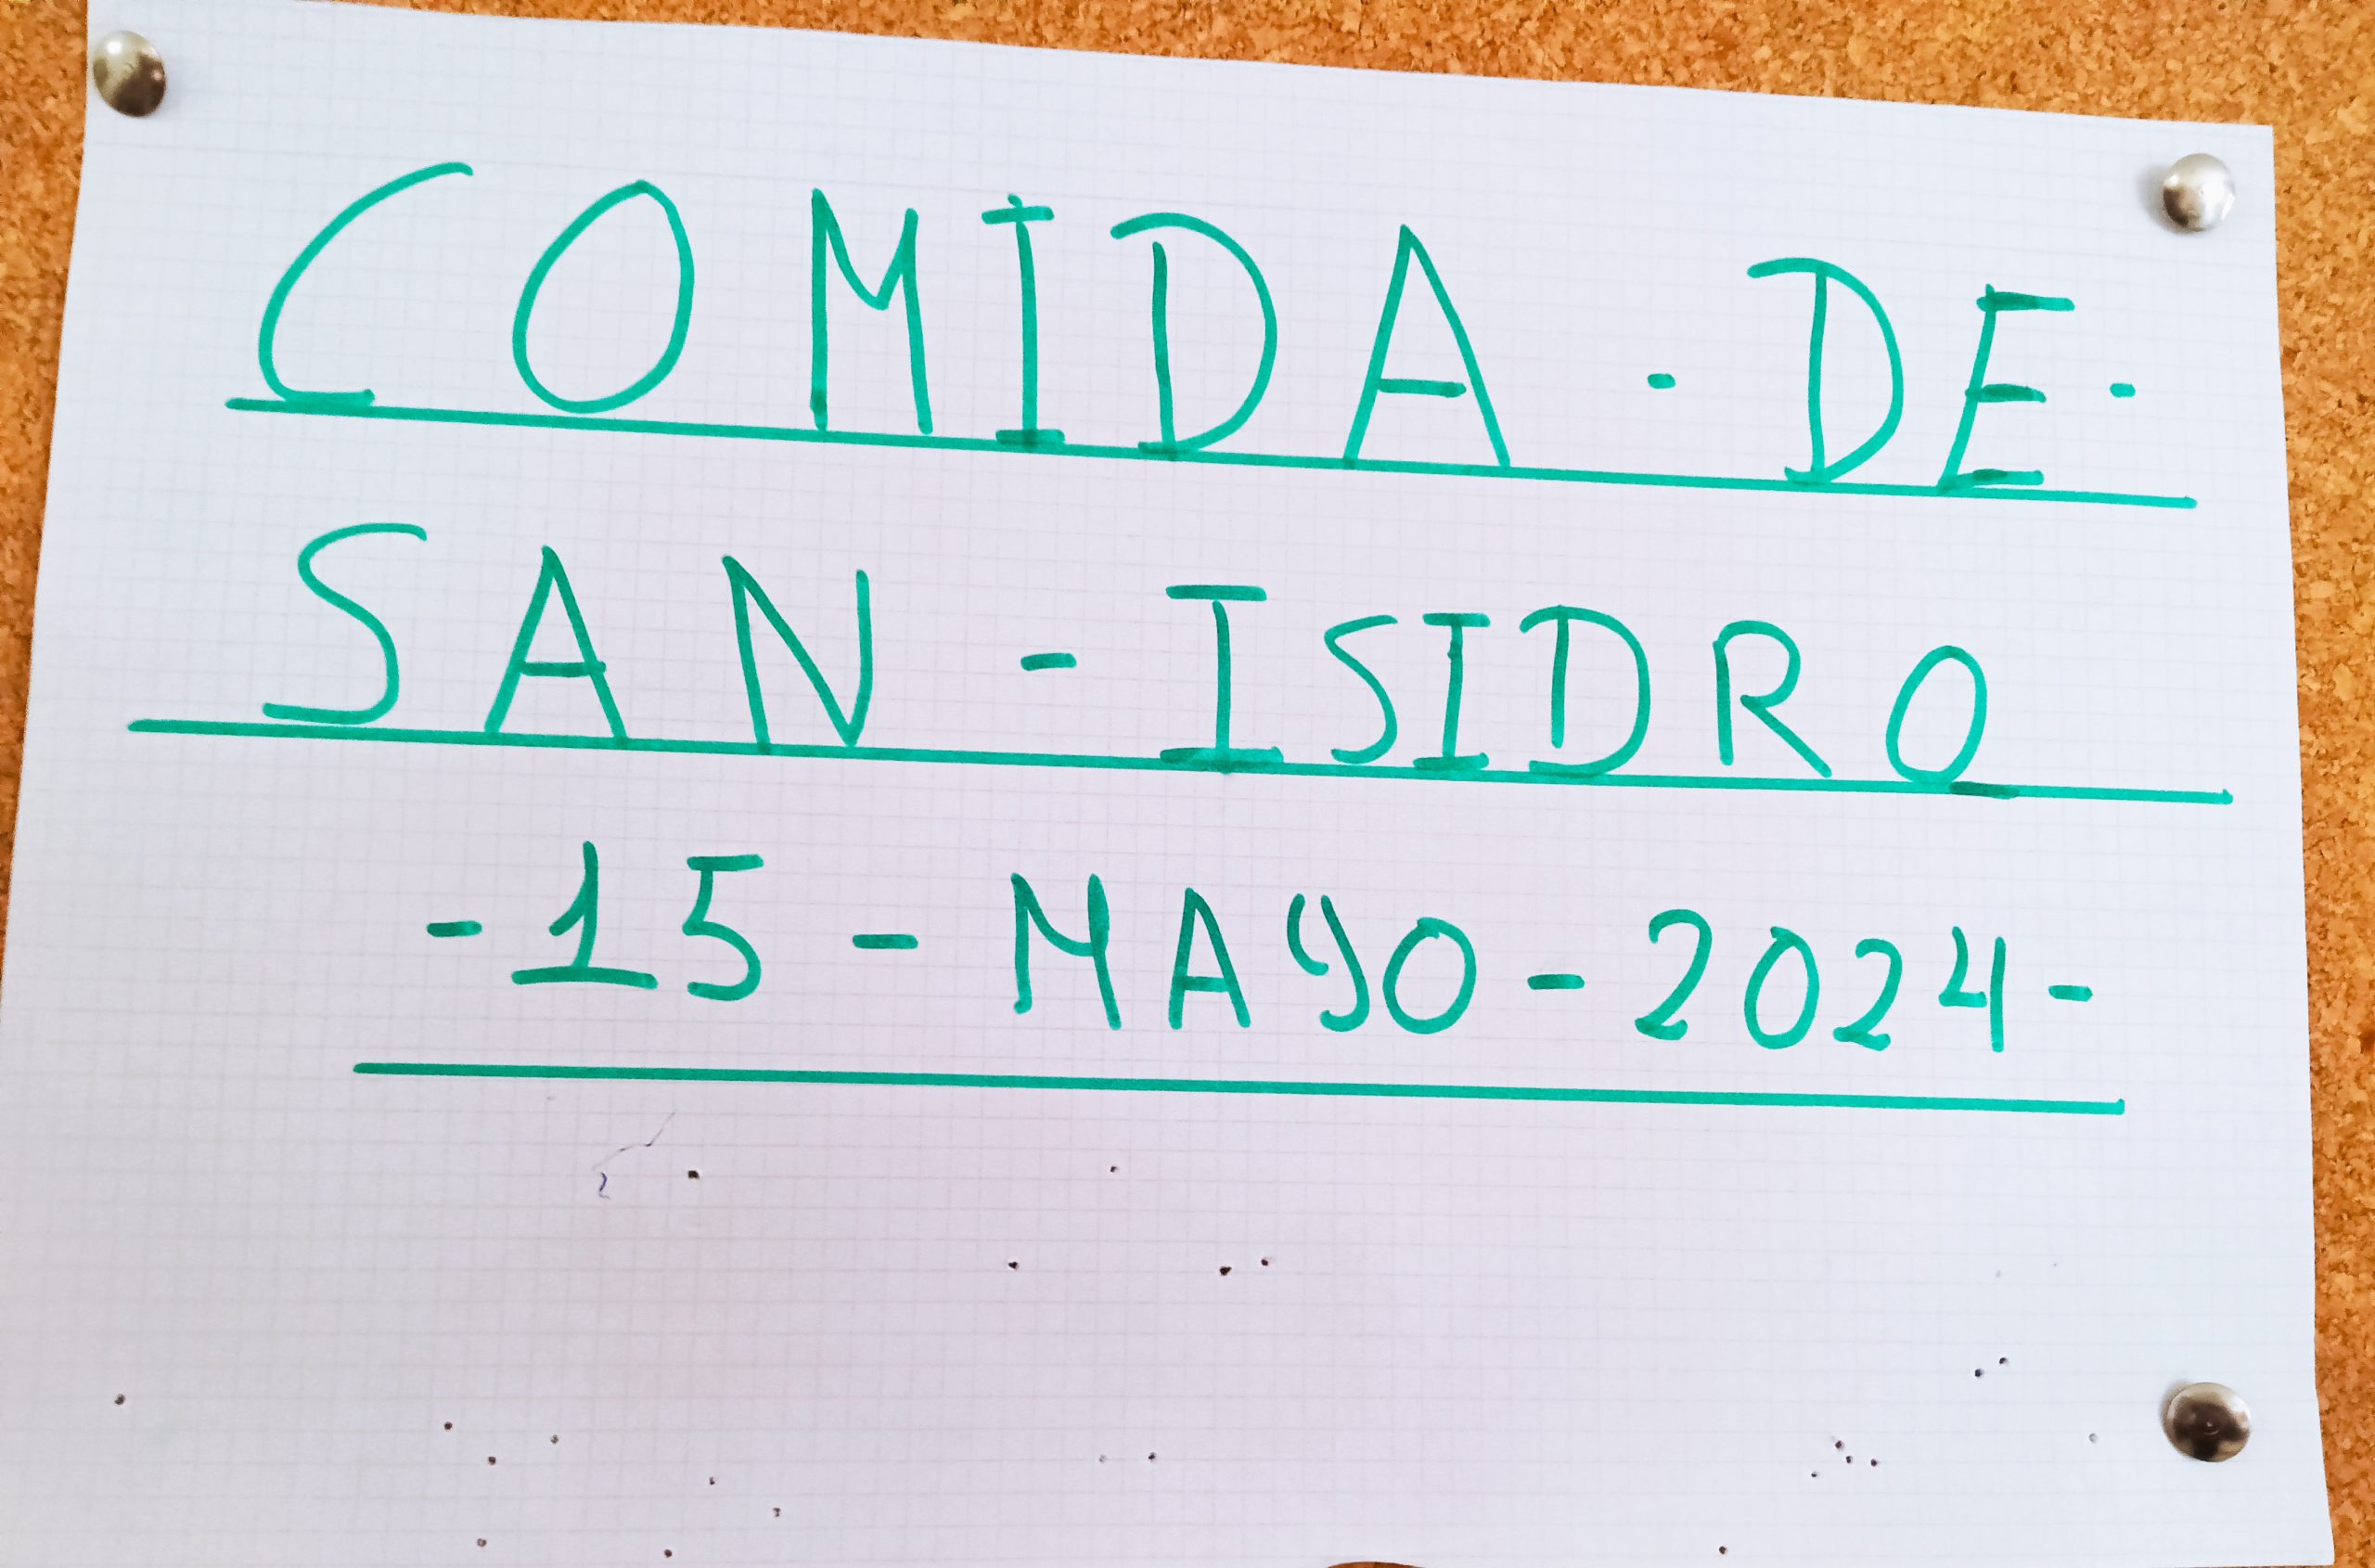 COMIDA - DE -
SAN - ISIDRO
- 15 - MAYO - 2024 -